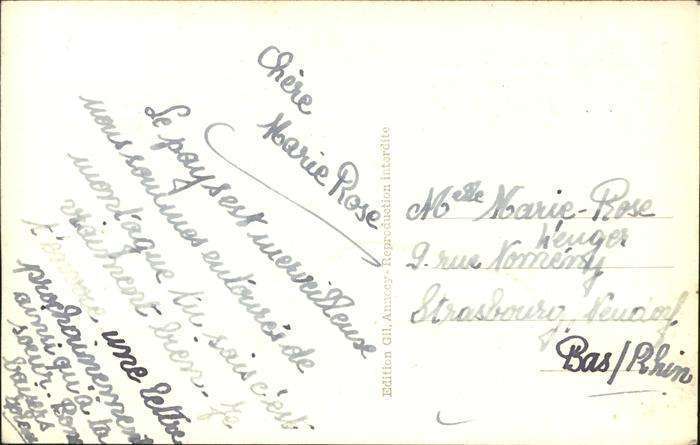 Chère
Marie Rose
Le pays est merveilleux
nous sommes entourés de
montagne tu sais c'est
vraiment bien. Je
t'envoie une lettre
prochainement
ainsi qu'à ta
soeur. Bons
baisers
Edition Gil, Annecy - Reproduction interdite
Melle Marie-Rose
Wenger
9. rue Nomény
Strasbourg Neudorf
Bas/Rhin